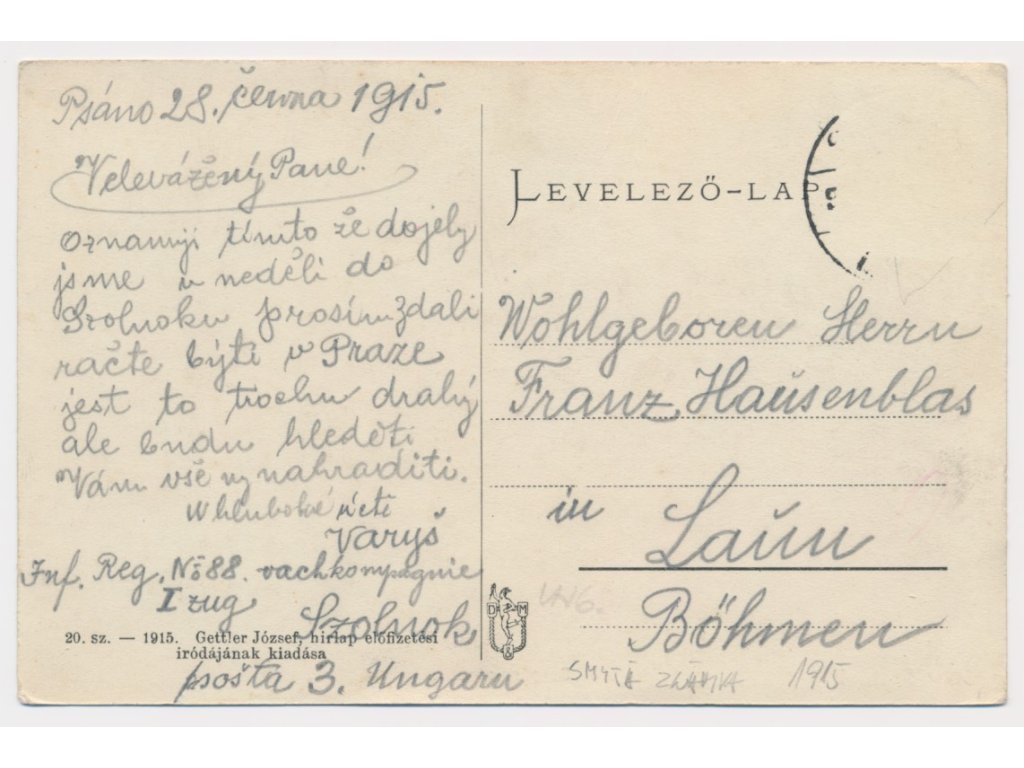 Psáno 28. června 1915.
Velevážený Pane!
Oznamyji tímto že dojely
jsme v neděli do
Szolnoku prosím zdali
račte býti v Praze
jest to trochu drahý
ale budu hleděti
Vám vše vynahraditi.
W hluboké úctě
Varyš
Inf. Reg. No 88. vachkompagnie
I zug
Szolnok
pošta 3. Ungarn
20. sz. — 1915. Gettler József, hirlap előfizetési
irodájának kiadása
LEVELEZŐ-LAP
Wohlgeboren Herrn
Franz Hausenblas
in Laun
Böhmen
D M
SMYTÁ ZNÁMKA 1915